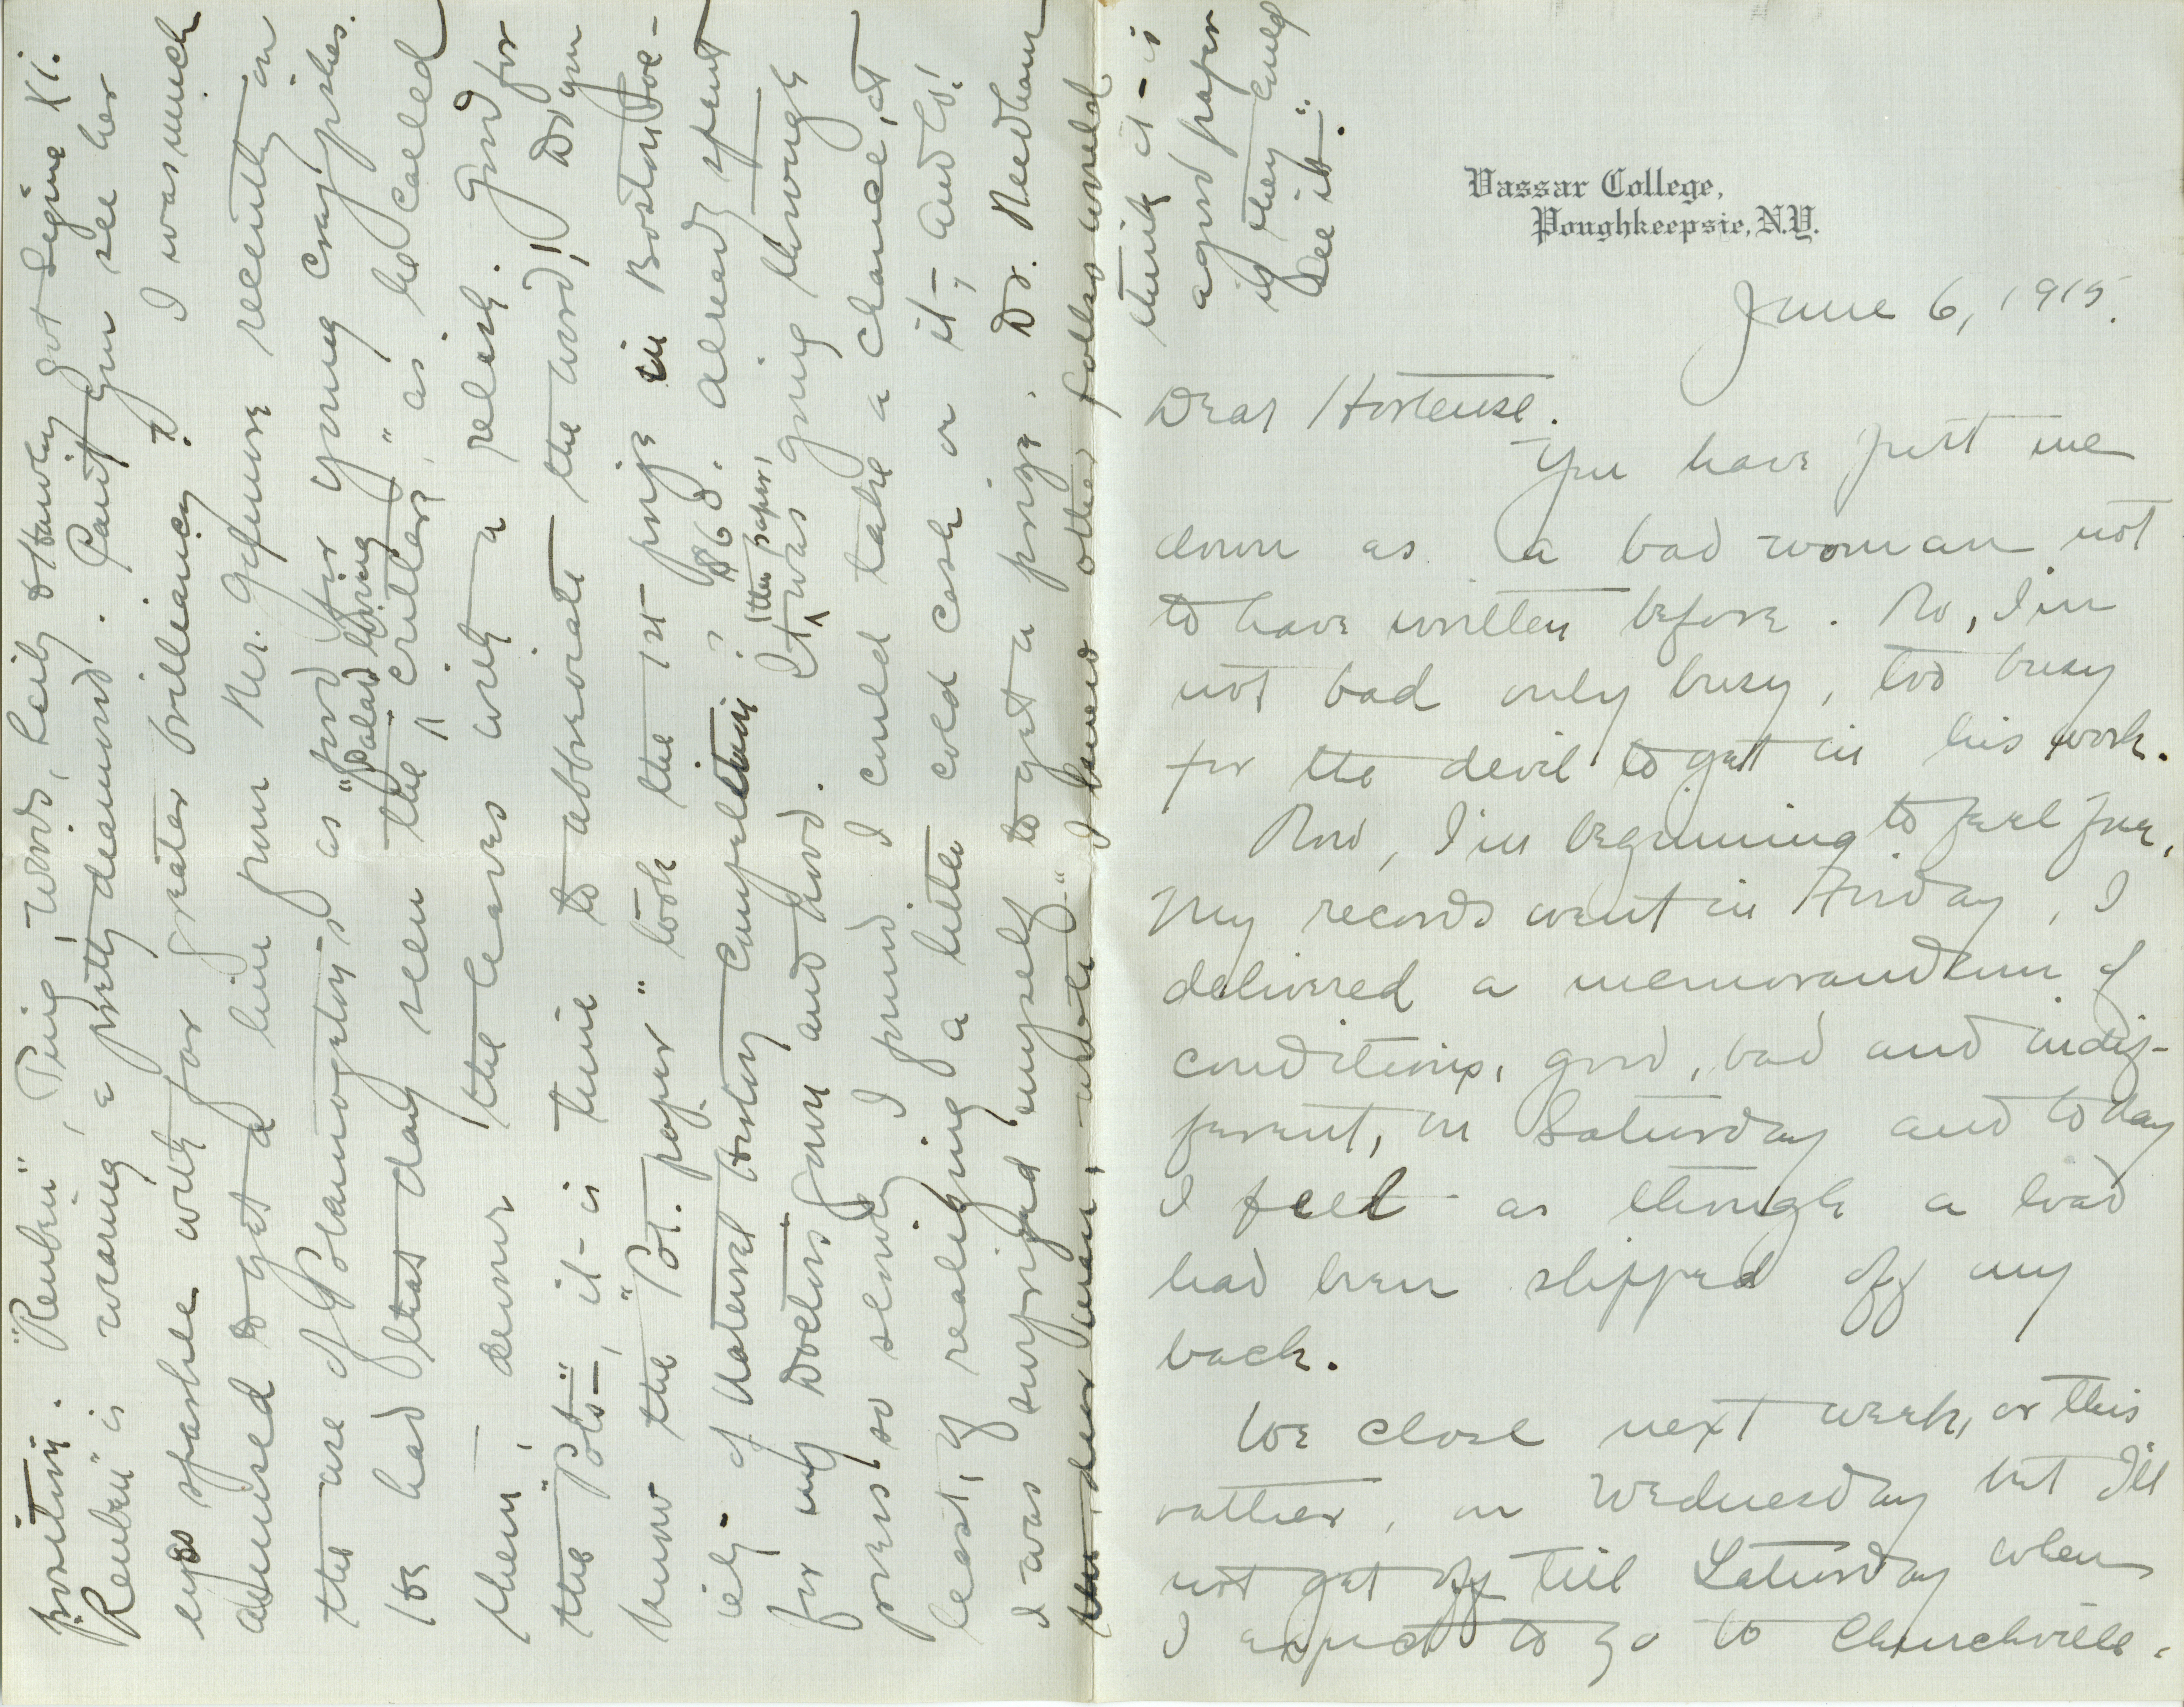 Vassar College,
Poughkeepsie, N.Y.
June 6, 1915.
Dear Hortense.
You have put me
down as a bad woman not
to have written before. No, I'm
not bad only busy, too busy
for the devil to get in his work.
Now, I'm beginning to feel free,
My records went in Friday, I
delivered a memorandum of
conditions, good, bad and indif-
ferent, on Saturday and today
I feel as though a load
had been slipped off my
back.
We close next week, or this
rather, on Wednesday but I'll
not get off till Saturday when
I expect to go to Churchville.
position. "Reuben", Ping, Words, Reily & Hawley got Sigma Xi.
Reuben" is wearing a pretty diamond. Can't you see her
eyes sparkle with far greater brilliancy? I was much
amused to get a line from Mr. recently on
the use of Potamogeton's as food for young crayfishes.
He had that day seen the "salad loving critters", as he called
them, devour the leaves with a relish. Good for
the "Pots", it is time to abbreviate the word! Do you
know the "Pot. paper" took the 1st prize in Boston Soc-
iety of Natural History Competition? $60. Already spent
for my Doctor's gown and hood. It was going through
(the paper,
press so slowly I found I could take a chance, at
least, of realizing a little cold cash on it, and lo!
I was surprised myself to get a prize. Dr. Needham
dear man, wrote "I knew other folks would
think it is
a good paper
if they could
see it".